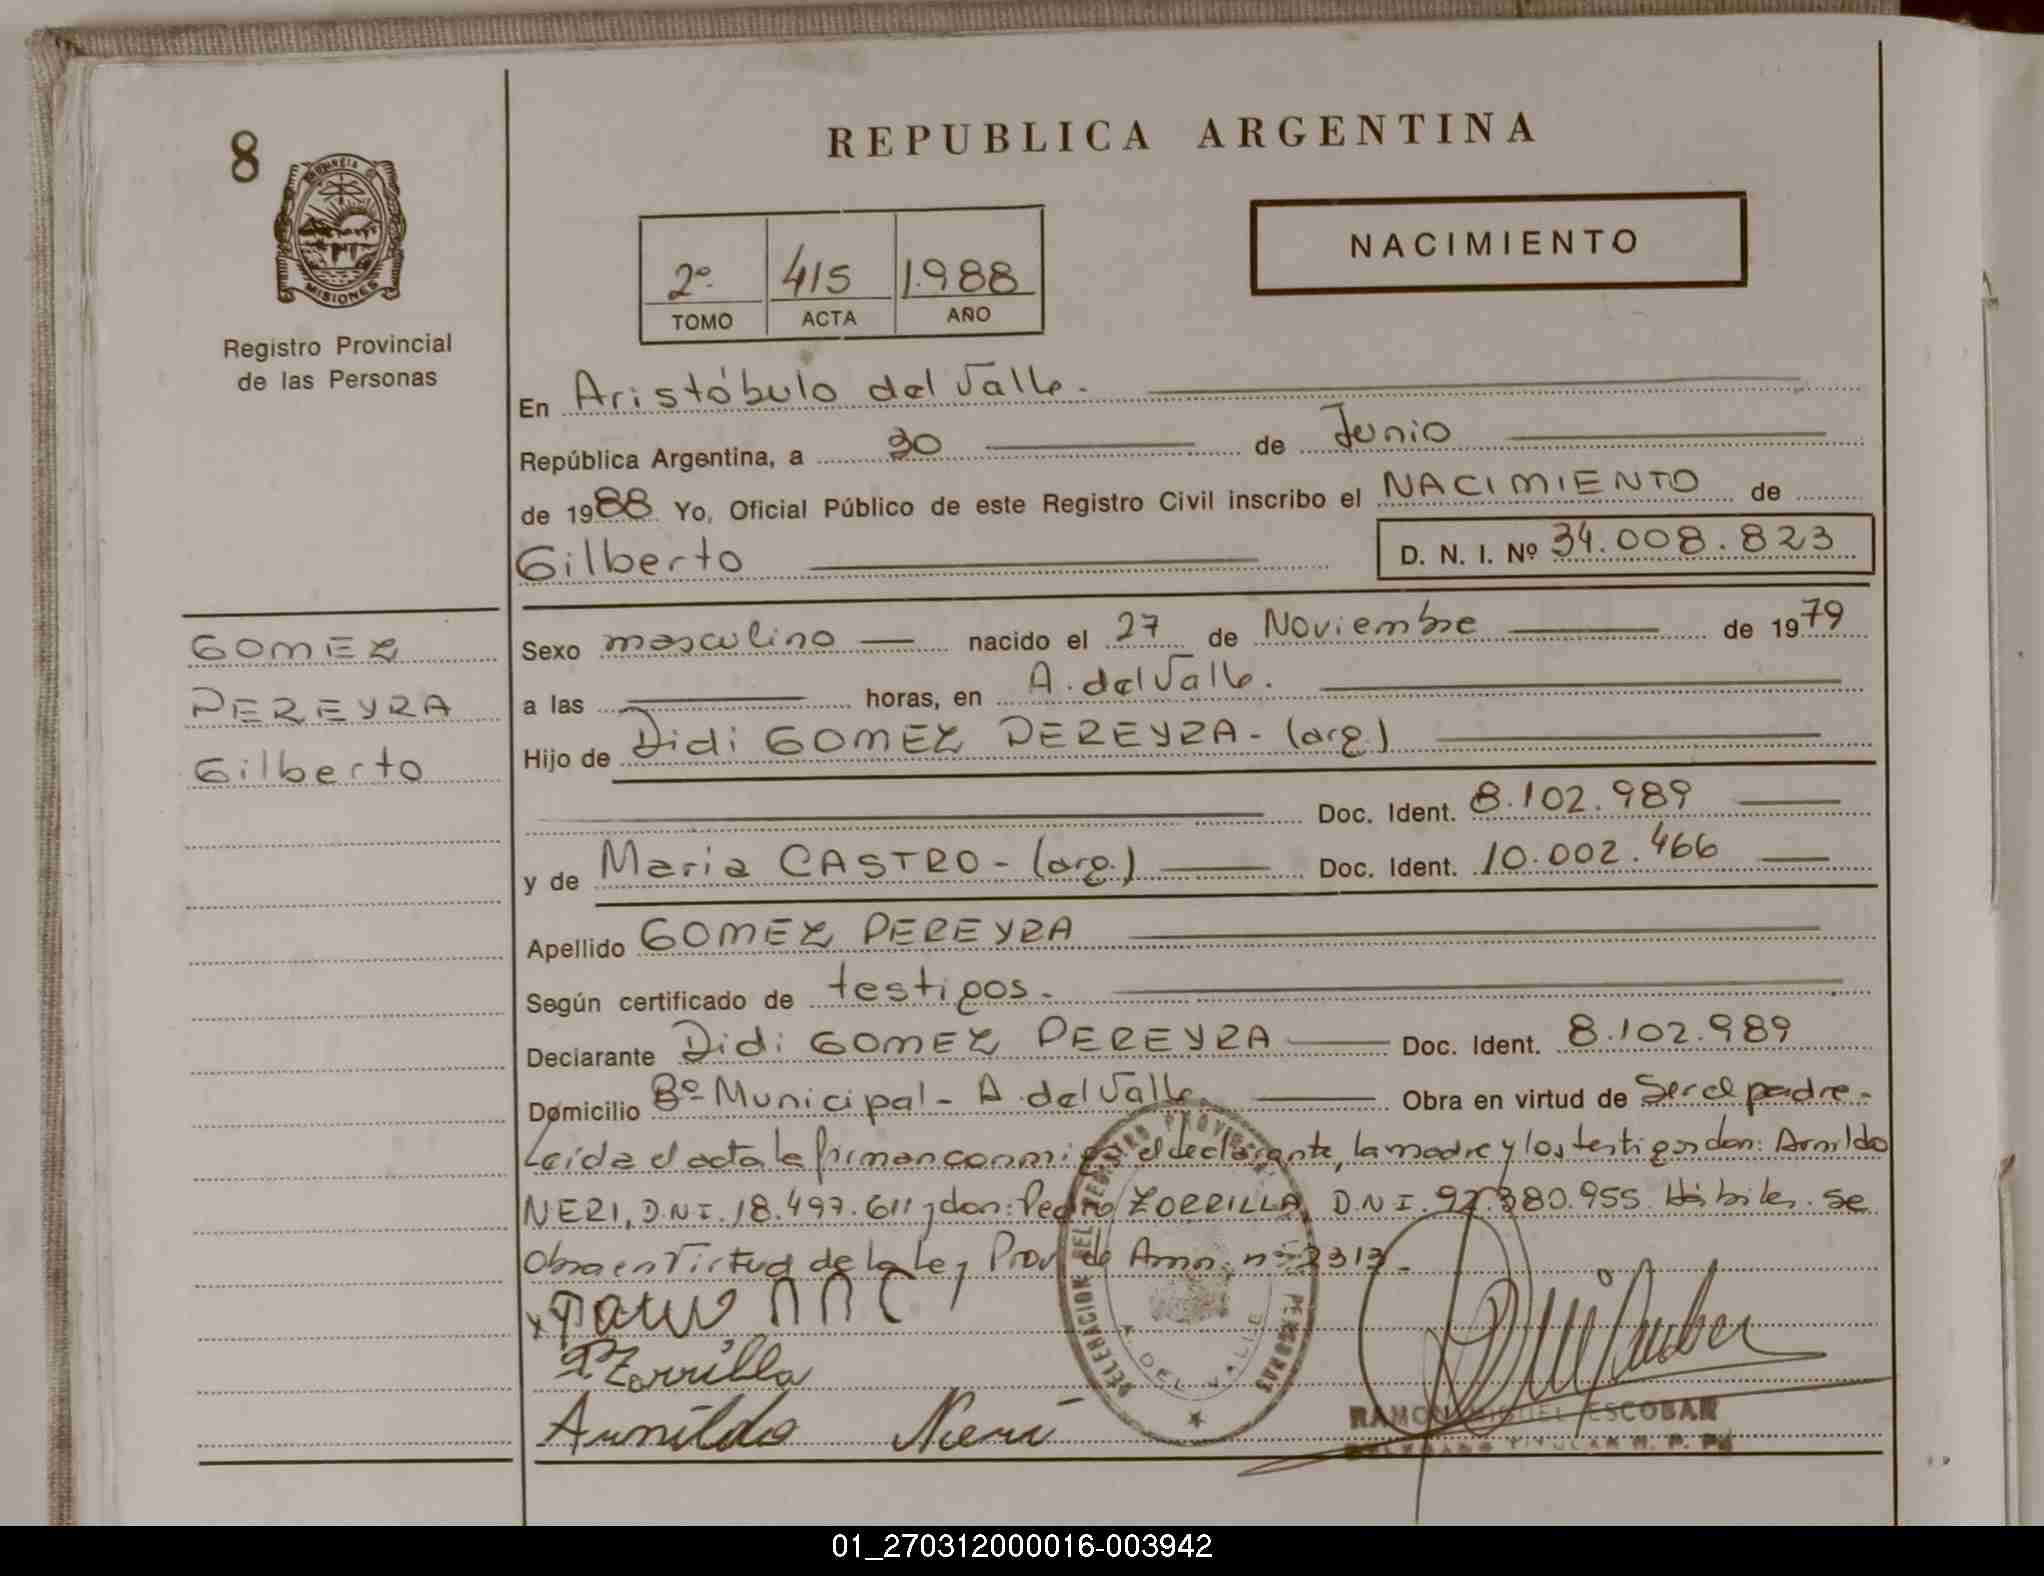 8
PROVINCIA DE
MISIONES
Registro Provincial
de las Personas
REPUBLICA ARGENTINA
2º 415 1.988
TOMO ACTA AÑO
NACIMIENTO
En Aristóbulo del Valle.
República Argentina, a 30 de Junio
de 1988 Yo, Oficial Público de este Registro Civil inscribo el NACIMIENTO de
Gilberto D. N. I. Nº 34.008.823
GOMEZ
PEREYRA
Gilberto
Sexo masculino nacido el 27 de Noviembre de 1979
a las horas, en A. del Valle.
Hijo de Didi GOMEZ PEREYRA - (arg.)
Doc. Ident. 8.102.989
y de Maria CASTRO - (arg.) Doc. Ident. 10.002.466
Apellido GOMEZ PEREYRA
Según certificado de testigos.
Declarante Didi GOMEZ PEREYRA Doc. Ident. 8.102.989
Domicilio Bº Municipal - A. del Valle Obra en virtud de Ser el padre.
Leida el acta la firman conmigo el declarante, la madre y los testigos don: Arnildo
NERI, D.N.I. 18.497.611 y don: Pedro ZORRILLA D.N.I. 92.380.955. Hábiles. Se
Obra en Virtud de la Ley Prov. de Amn. nº 2313.
PZorrilla
Arnildo Neri
DELEGACION DEL REGISTRO PROVINCIAL PERSONAS
A. DEL VALLE
RAMON MIGUEL ESCOBAR
DELEGADO TITULAR R. P. Ps
01_270312000016-003942